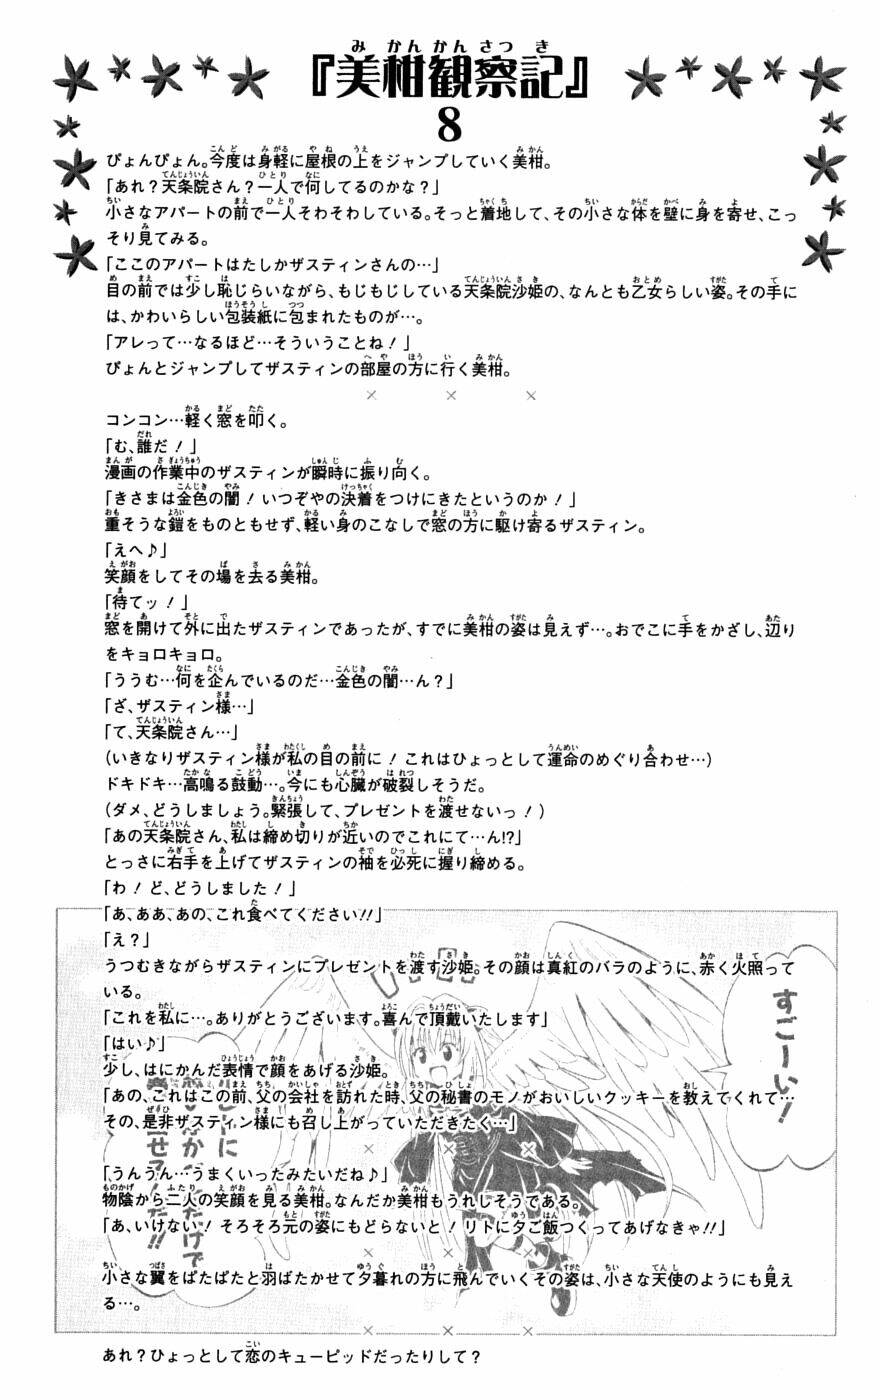 『美柑観察記』
8
ぴょんぴょん。今度は身軽に屋根の上をジャンプしていく美柑。
「あれ？天条院さん？一人で何してるのかな？」
小さなアパートの前で一人そわそわしている。そっと着地して、その小さな体を壁に身を寄せ、こっ
そり見てみる。
「ここのアパートはたしかザスティンさんの…」
目の前では少し恥じらいながら、もじもじしている天条院沙姫の、なんとも乙女らしい姿。その手に
は、かわいらしい包装紙に包まれたものが…。
「アレって…なるほど…そういうことね！」
ぴょんとジャンプしてザスティンの部屋の方に行く美柑。
× × ×
コンコン…軽く窓を叩く。
「む、誰だ！」
漫画の作業中のザスティンが瞬時に振り向く。
「きさまは金色の闇！いつぞやの決着をつけにきたというのか！」
重そうな鎧をものともせず、軽い身のこなしで窓の方に駆け寄るザスティン。
「えへ♪」
笑顔をしてその場を去る美柑。
「待てッ！」
窓を開けて外に出たザスティンであったが、すでに美柑の姿は見えず…。おでこに手をかざし、辺り
をキョロキョロ。
「ううむ…何を企んでいるのだ…金色の闇…ん？」
「ざ、ザスティン様…」
「て、天条院さん…」
（いきなりザスティン様が私の目の前に！これはひょっとして運命のめぐり合わせ…）
ドキドキ…高鳴る鼓動…。今にも心臓が破裂しそうだ。
（ダメ、どうしましょう。緊張して、プレゼントを渡せないっ！）
「あの天条院さん、私は締め切りが近いのでこれにて…ん!?」
とっさに右手を上げてザスティンの袖を必死に握り締める。
「わ！ど、どうしました！」
「あ、ああ、あの、これ食べてください!!」
「え？」
うつむきながらザスティンにプレゼントを渡す沙姫。その顔は真紅のバラのように、赤く火照って
いる。
「これを私に…。ありがとうございます。喜んで頂戴いたします」
「はい♪」
少し、はにかんだ表情で顔をあげる沙姫。
「あの、これはこの前、父の会社を訪れた時、父の秘書のモノがおいしいクッキーを教えてくれて…
その、是非ザスティン様にも召し上がっていただきたく…」
× × ×
「うんうん…うまくいったみたいだね♪」
物陰から二人の笑顔を見る美柑。なんだか美柑もうれしそうである。
「あ、いけない！そろそろ元の姿にもどらないと！リトに夕ご飯つくってあげなきゃ!!」
× × ×
小さな翼をぱたぱたと羽ばたかせて夕暮れの方に飛んでいくその姿は、小さな天使のようにも見え
る…。
× × ×
あれ？ひょっとして恋のキューピッドだったりして？
すごーい！